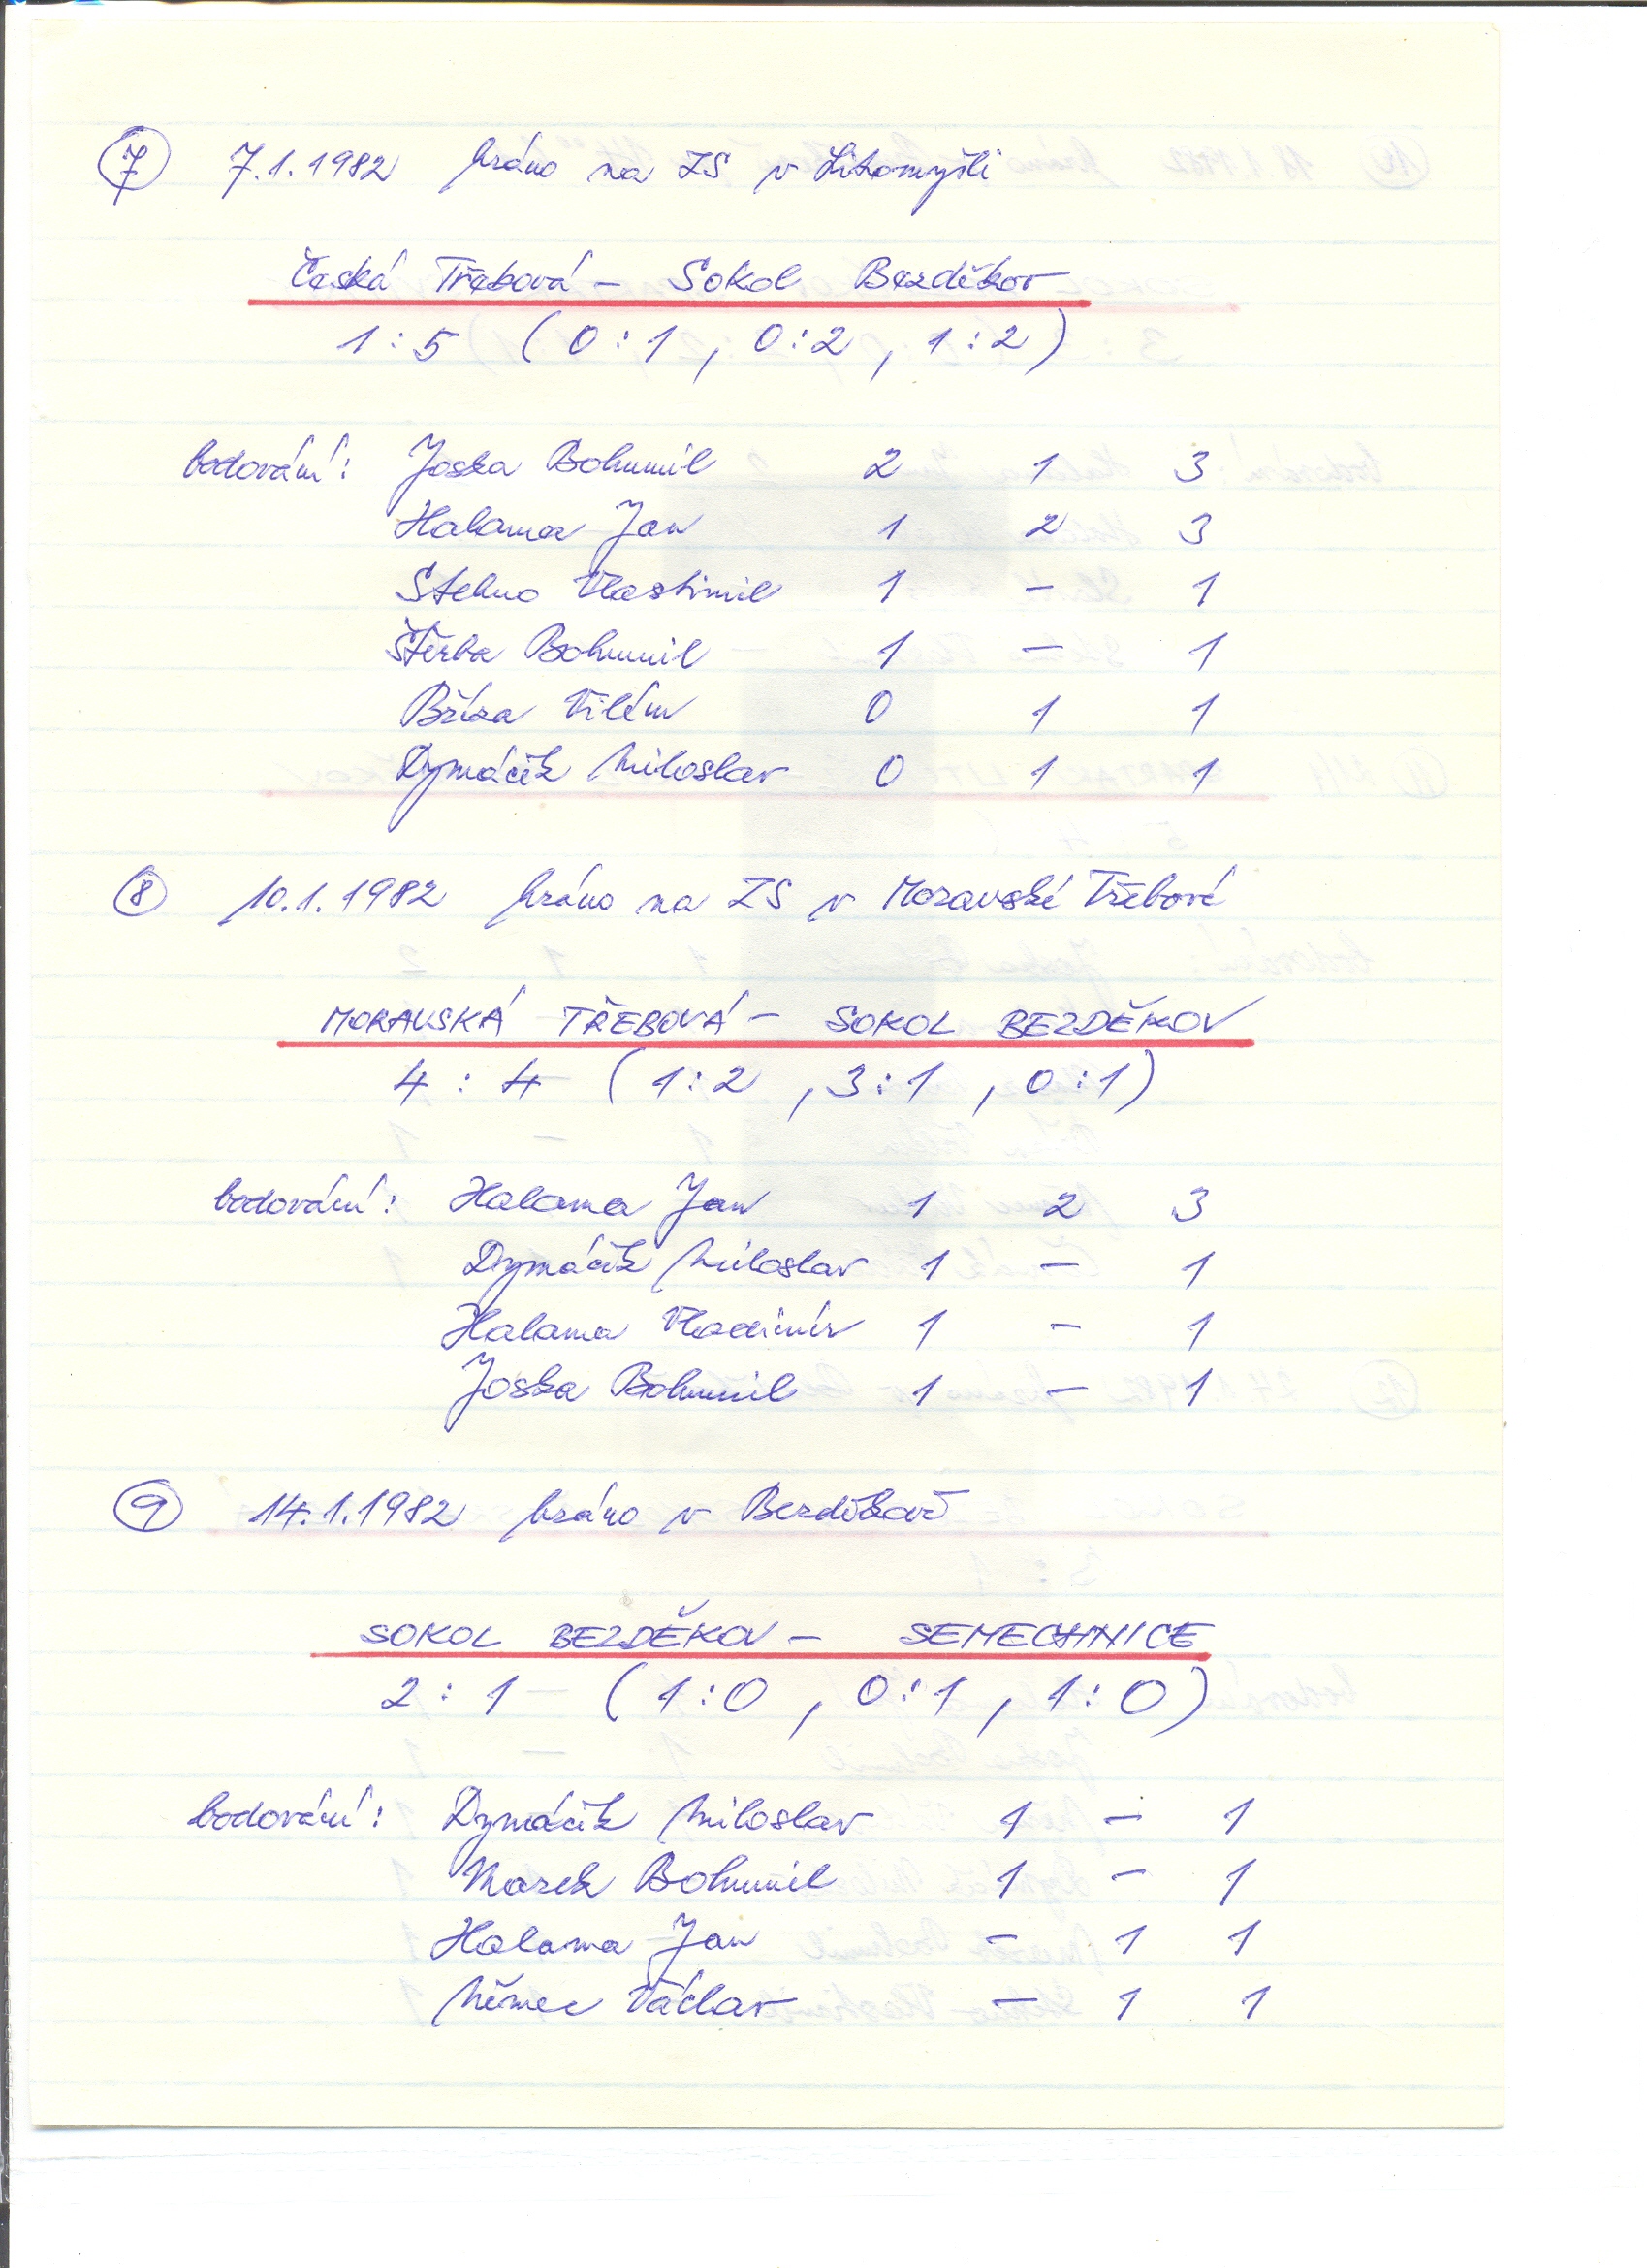 7 7.1.1982 hráno na ZS v Litomyšli
Česká Třebová - Sokol Bezděkov
1:5 (0:1, 0:2, 1:2)
bodování: Joska Bohumil 2 1 3
Halama Jan 1 2 3
Stehno Vlastimil 1 - 1
Štěrba Bohumil 1 - 1
Bříza Vilém 0 1 1
Dymáčik Miloslav 0 1 1
8 10.1.1982 hráno na ZS v Moravské Třebové
MORAVSKÁ TŘEBOVÁ - SOKOL BEZDĚKOV
4 : 4 (1:2, 3:1, 0:1)
bodování: Halama Jan 1 2 3
Dymáčik Miloslav 1 - 1
Halama Vladimír 1 - 1
Joska Bohumil 1 - 1
9 14.1.1982 hráno v Bezděkově
SOKOL BEZDĚKOV - SEMECHNICE
2:1 - (1:0, 0:1, 1:0)
bodování: Dymáčik Miloslav 1 - 1
Marek Bohumil 1 - 1
Halama Jan - 1 1
Němec Václav - 1 1